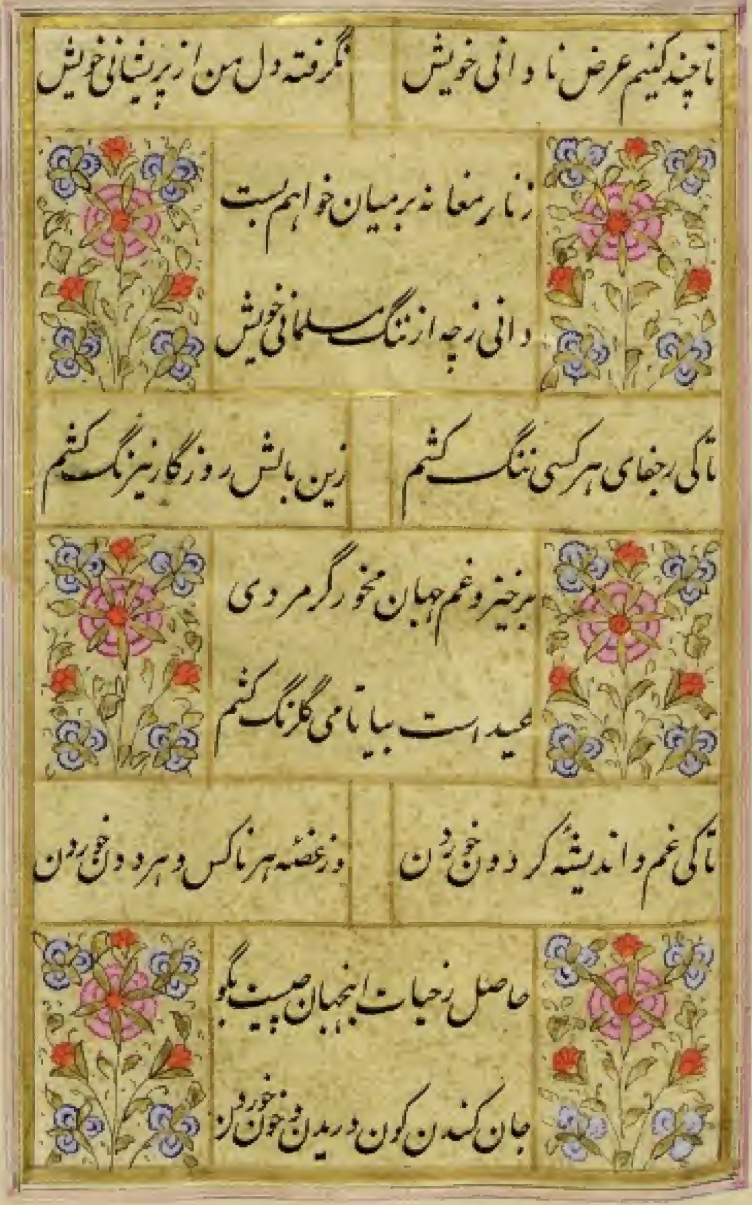 تا چند کنیم عرض نادانی خویش
نگرفته دل من از پریشانی خویش
زنار مغانه بر میان خواهم بست
دانی ز چه از ننگ مسلمانی خویش
تا کی ز جفای هر کسی ننگ کشم
زین بالش روزگار نیرنگ کشم
برخیز و غم جهان مخور گر مردی
عید است بیا تا می گلرنگ کشم
تا کی غم و اندیشهٔ کردون خوردن
وز غصه هر ناکس و هر دون خوردن
حاصل ز حیات اینجهان چیست بگو
جان کندن کون دریدن و خون خوردن